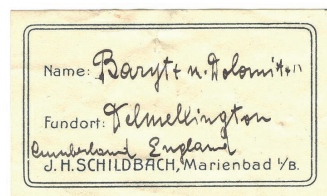 Name: Baryt u. Dolomit
Fundort: Delmellington
Cumberland England
J. H. SCHILDBACH, Marienbad i/B.